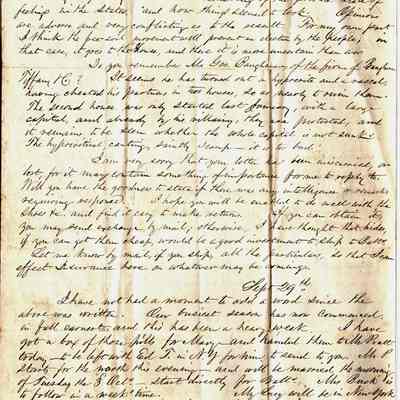 fishing in the States, and now things almost a lock. Opinions
are adverse and very conflicting as to the result. For my own part
I think the free soil movement will prevent an election by the people, in
that case, it goes to the House, and there it is more uncertain than ever
Do you remember Mr Geo. of the firm of
Tiffany & C.? It seems he has turned out a hypocrite and a rascal
having cheated his partners in two houses, so as nearly to ruin them.
The second house was only started last January, with a large
capital, and already by his villainy, they are protested, and
it remains to be seen whether the whole capital is not sunk.
The hypocritical, canting, saintly scamp - it is too bad.
I am very sorry that your letter has been miscarried, or
lost, for it may contain something of importance for me to reply to.
Will you have the goodness to state if there was any intelligence or remarks
requiring response. I hope you will be enabled to do well with the
Shoes &c. and find it easy to make returns. If you can obtain it,
you may send exchange by mail; otherwise, I have thought that hides,
if you can get them cheap, would be a good investment to ship to Balt.
Let me know by mail, if you ship, all the particulars, so that I can
effect Insurance here on whatever may be coming.
Sept 29th
I have not had a moment to add a word since the
above was written. Our busiest season has now commenced
in full earnest, and this has been a heavy week. I have
got a box of those pills for Mary and handed them to Mr Pratt
today - to be left with Ed. T. in N.Y for him to send to you. Mr P
starts for the north this evening - and will be married the morning
of Tuesday the 3 Oct - start directly for Balt.
to follow in a week's time. My Lucy will be in New York